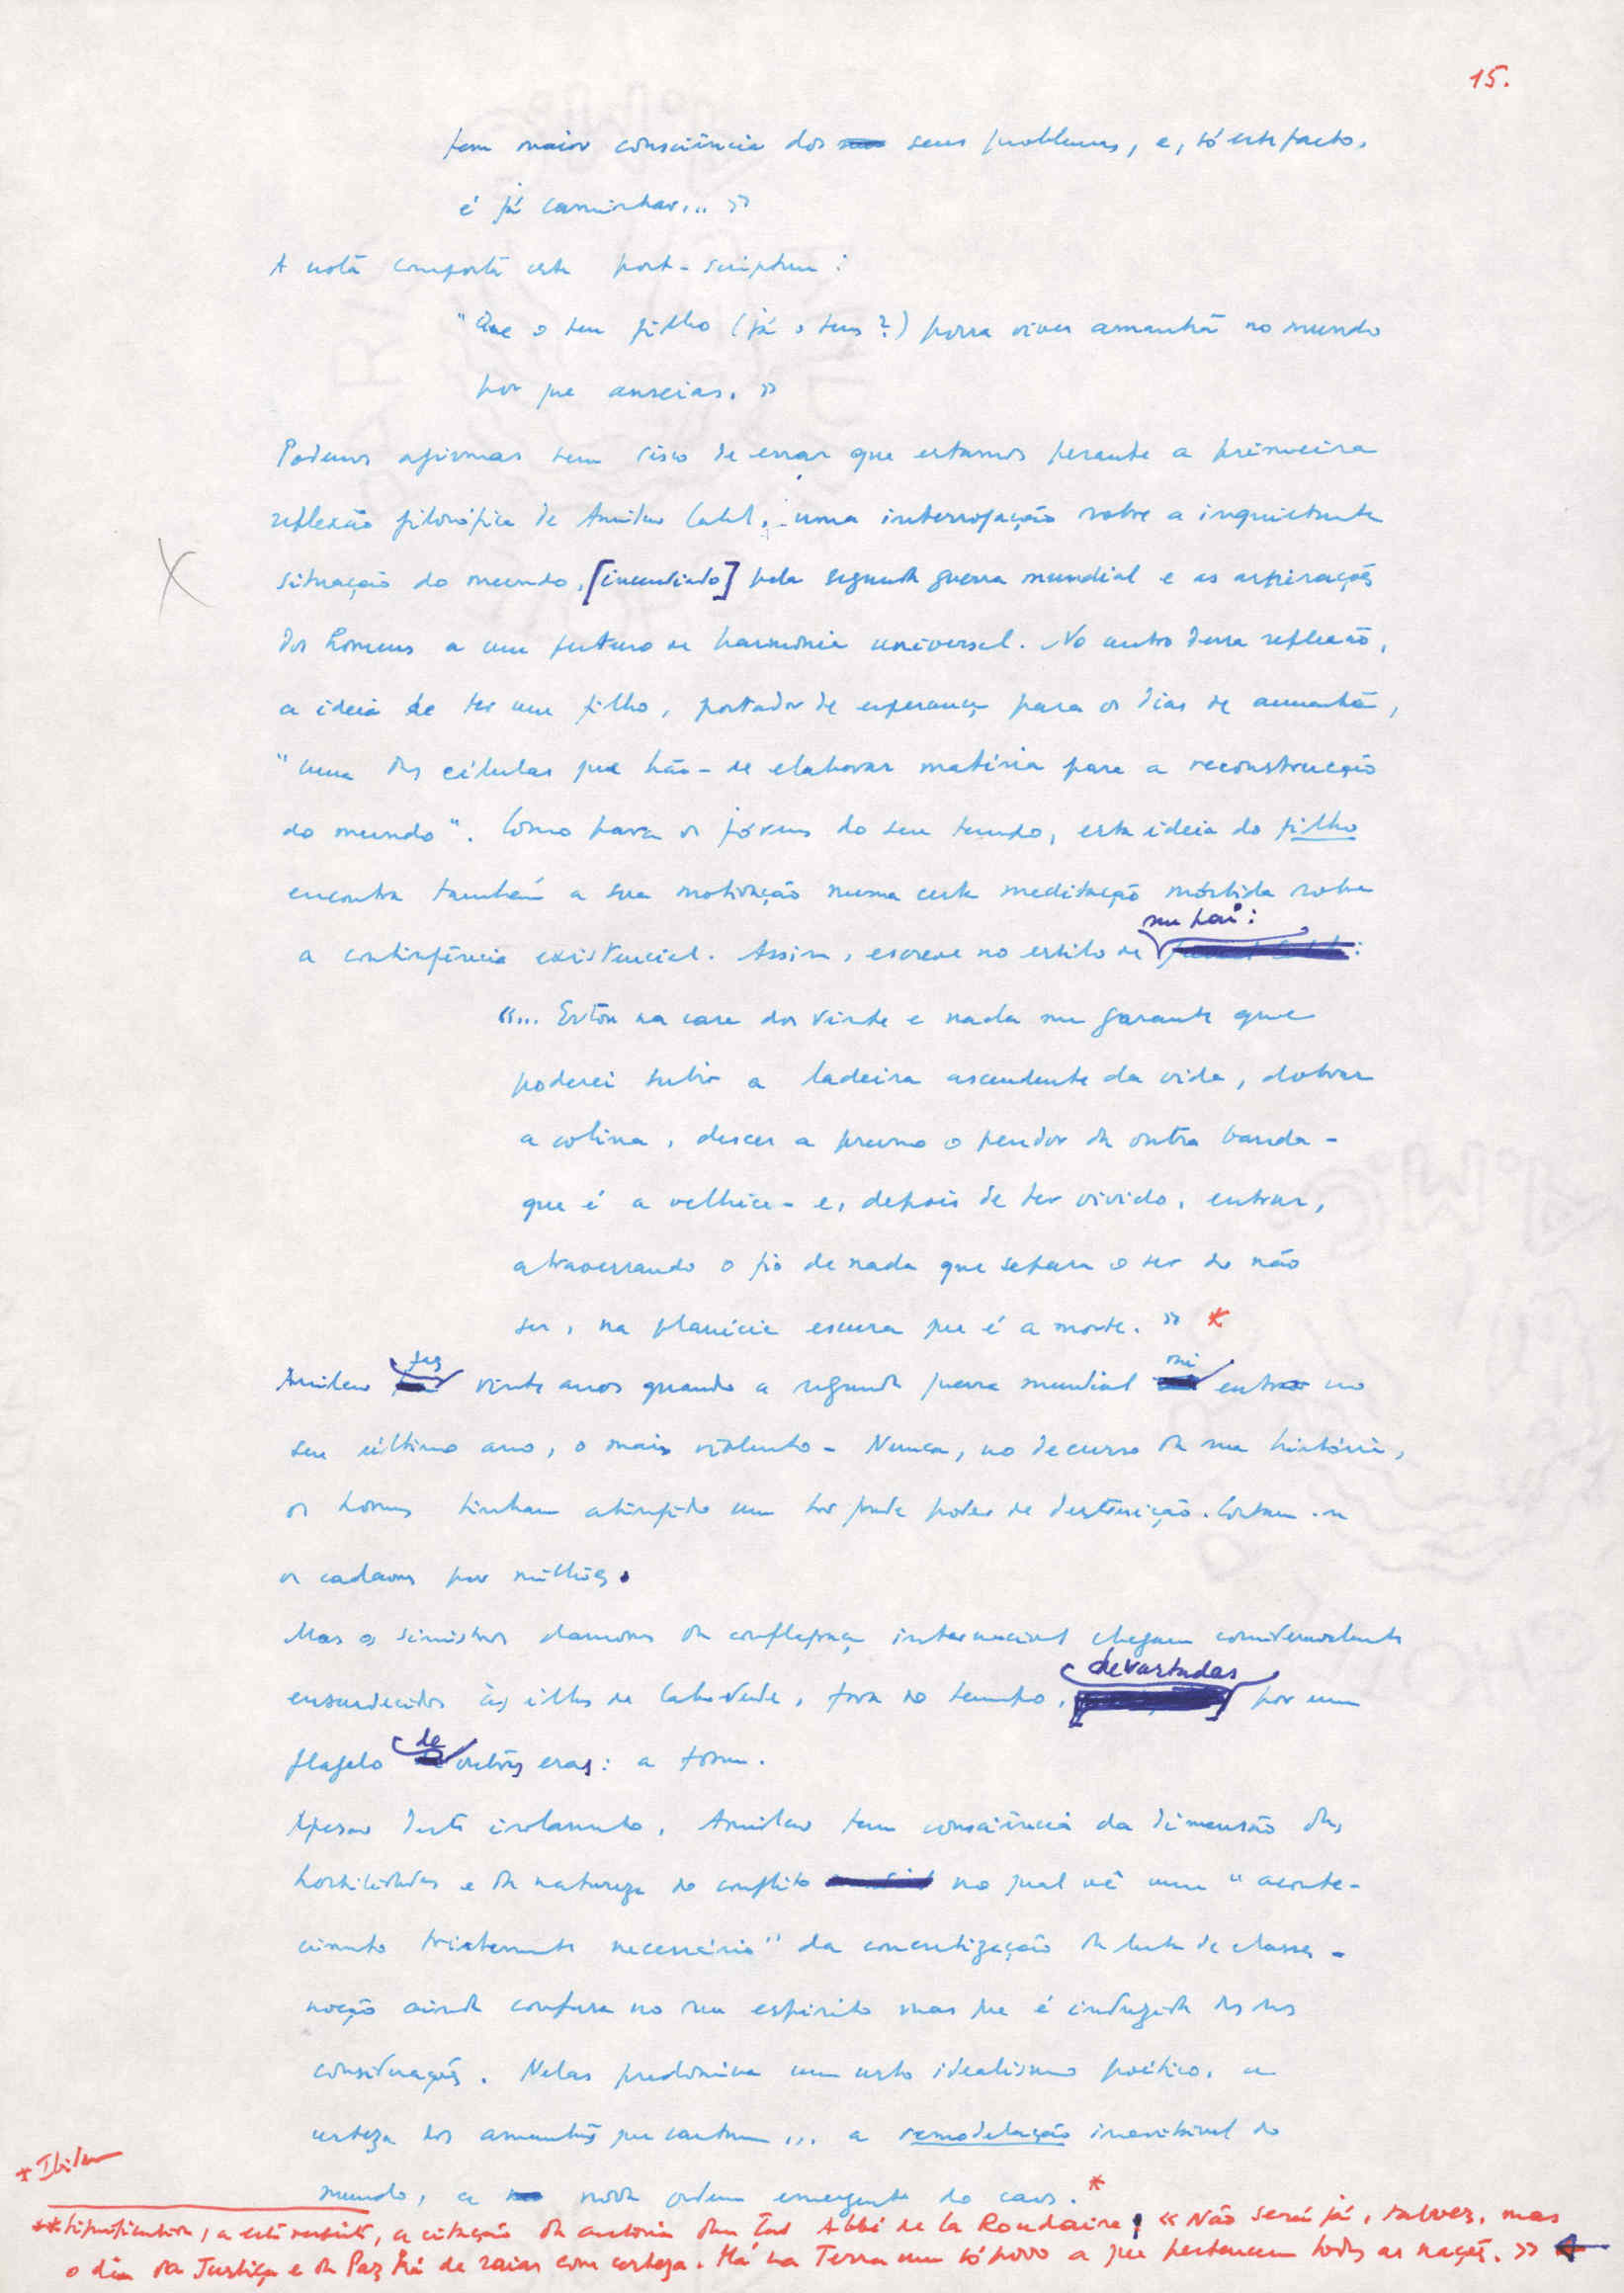 15.
tem maior consciência dos seus problemas, e, só este facto,
é já caminhar... »
A nota comporta este post-scriptum :
"Que o teu filho (já o tens ?) possa viver amanhã no mundo
por que anseias. »
Podemos afirmar sem risco de errar que estamos perante a primeira
reflexão filosófica de Amilcar Cabral, uma interrogação sobre a inquietante
situação do mundo, [incendiado] pela segunda guerra mundial e as aspirações
dos homens a um futuro de harmonia universal. No centro dessa reflexão,
a ideia de ter um filho, portador de esperança para os dias de amanhã,
"uma das células que hão-de elaborar matéria para a reconstrucção
do mundo". Como para os jóvens do seu tempo, esta ideia do filho
encontra também a sua motivação numa certa meditação mórbida sobre
a contingência existencial. Assim, escreve no estilo de seu pai :
«... Estou na casa dos vinte e nada me garante que
poderei subir a ladeira ascendente da vida, dobrar
a colina, descer a prumo o pendor da outra banda -
que é a velhice - e, depois de ter vivido, entrar,
atravessando o fio de nada que separa o ser do não
ser, na planície escura que é a morte. » *
Amilcar fez vinte anos quando a segunda guerra mundial entra no
seu último ano, o mais violento - Nunca, no decurso da sua história,
os homens tinham atingido um tão grande poder de destruição. Contam-se
os cadaveres por milhões.
Mas os sinistros clamores da conflagração internacional chegam consideravelmente
ensurdecidos às ilhas de Cabo Verde, fora do tempo, devastadas por um
flagelo de outras eras : a fome.
Apesar deste isolamento, Amilcar tem consciência da dimensão das
hostilidades e da natureza do conflito no qual vê um "aconte-
cimento tristemente necessário" da concretização da luta de classes -
noção ainda confusa no seu espirito mas que é induzida das suas
considerações. Nelas predomina um certo idealismo poético, a
certeza dos amanhãs que cantam... a remodelação inevitável do
mundo, a nova ordem emergente do caos. *
* Ibidem
** Significativa, a este respeito, a citação da autoria dum Abbé de la Roudaire ; « Não será já, talvez, mas
o dia da Justiça e da Paz há de raiar com certeza. Há na Terra um só povo a que pertencem todas as nações. »